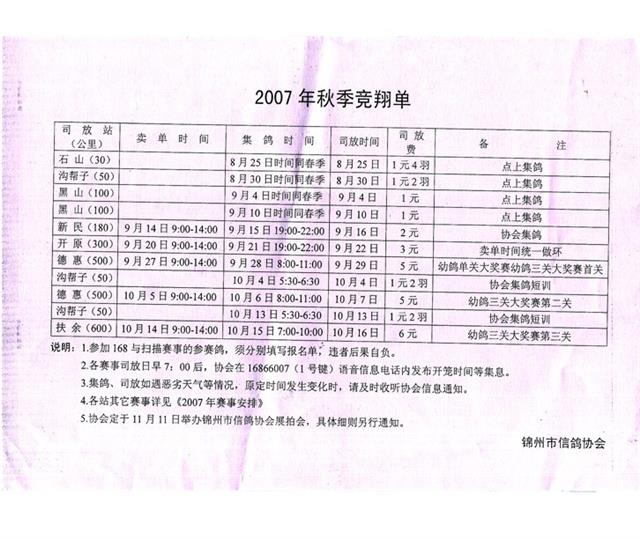 2007 年秋季竞翔单
司 放 站 （公里） 卖 单 时 间 集 鸽 时 间 司放时间 司 放 费 备 注
石 山（30） 8 月 25 日时间同春季 8 月 25 日 1 元 4 羽 点上集鸽
沟帮子（50） 8 月 30 日时间同春季 8 月 30 日 1 元 2 羽 点上集鸽
黑 山（100） 9 月 4 日时间同春季 9 月 4 日 1 元 点上集鸽
黑 山（100） 9 月 10 日时间同春季 9 月 10 日 1 元 点上集鸽
新 民（180） 9 月 14 日 9:00-14:00 9 月 15 日 19:00-22:00 9 月 16 日 2 元 协会集鸽
开 原（300） 9 月 20 日 9:00-14:00 9 月 21 日 19:00-22:00 9 月 22 日 3 元 卖单时间统一做环
德 惠（500） 9 月 27 日 9:00-14:00 9 月 28 日 8:00-11:00 9 月 29 日 5 元 幼鸽单关大奖赛幼鸽三关大奖赛首关
沟帮子（50） 10 月 4 日 5:30-6:30 10 月 4 日 1 元 2 羽 协会集鸽短训
德 惠（500） 10 月 5 日 9:00-14:00 10 月 6 日 8:00-11:00 10 月 7 日 5 元 幼鸽三关大奖赛第二关
沟帮子（50） 10 月 13 日 5:30-6:30 10 月 13 日 1 元 2 羽 协会集鸽短训
扶 余（600） 10 月 14 日 9:00-14:00 10 月 15 日 7:00-10:00 10 月 16 日 6 元 幼鸽三关大奖赛第三关
说明：1.参加 168 与扫描赛事的参赛鸽，须分别填写报名单，违者后果自负。
2.各赛事司放日早 7：00 后，协会在 16866007（1 号键）语音信息电话内发布开笼时间等集息。
3.集鸽、司放如遇恶劣天气等情况，原定时间发生变化时，请及时收听协会信息通知。
4.各站其它赛事详见《2007 年赛事安排》
5.协会定于 11 月 11 日举办锦州市信鸽协会展拍会，具体细则另行通知。
锦州市信鸽协会